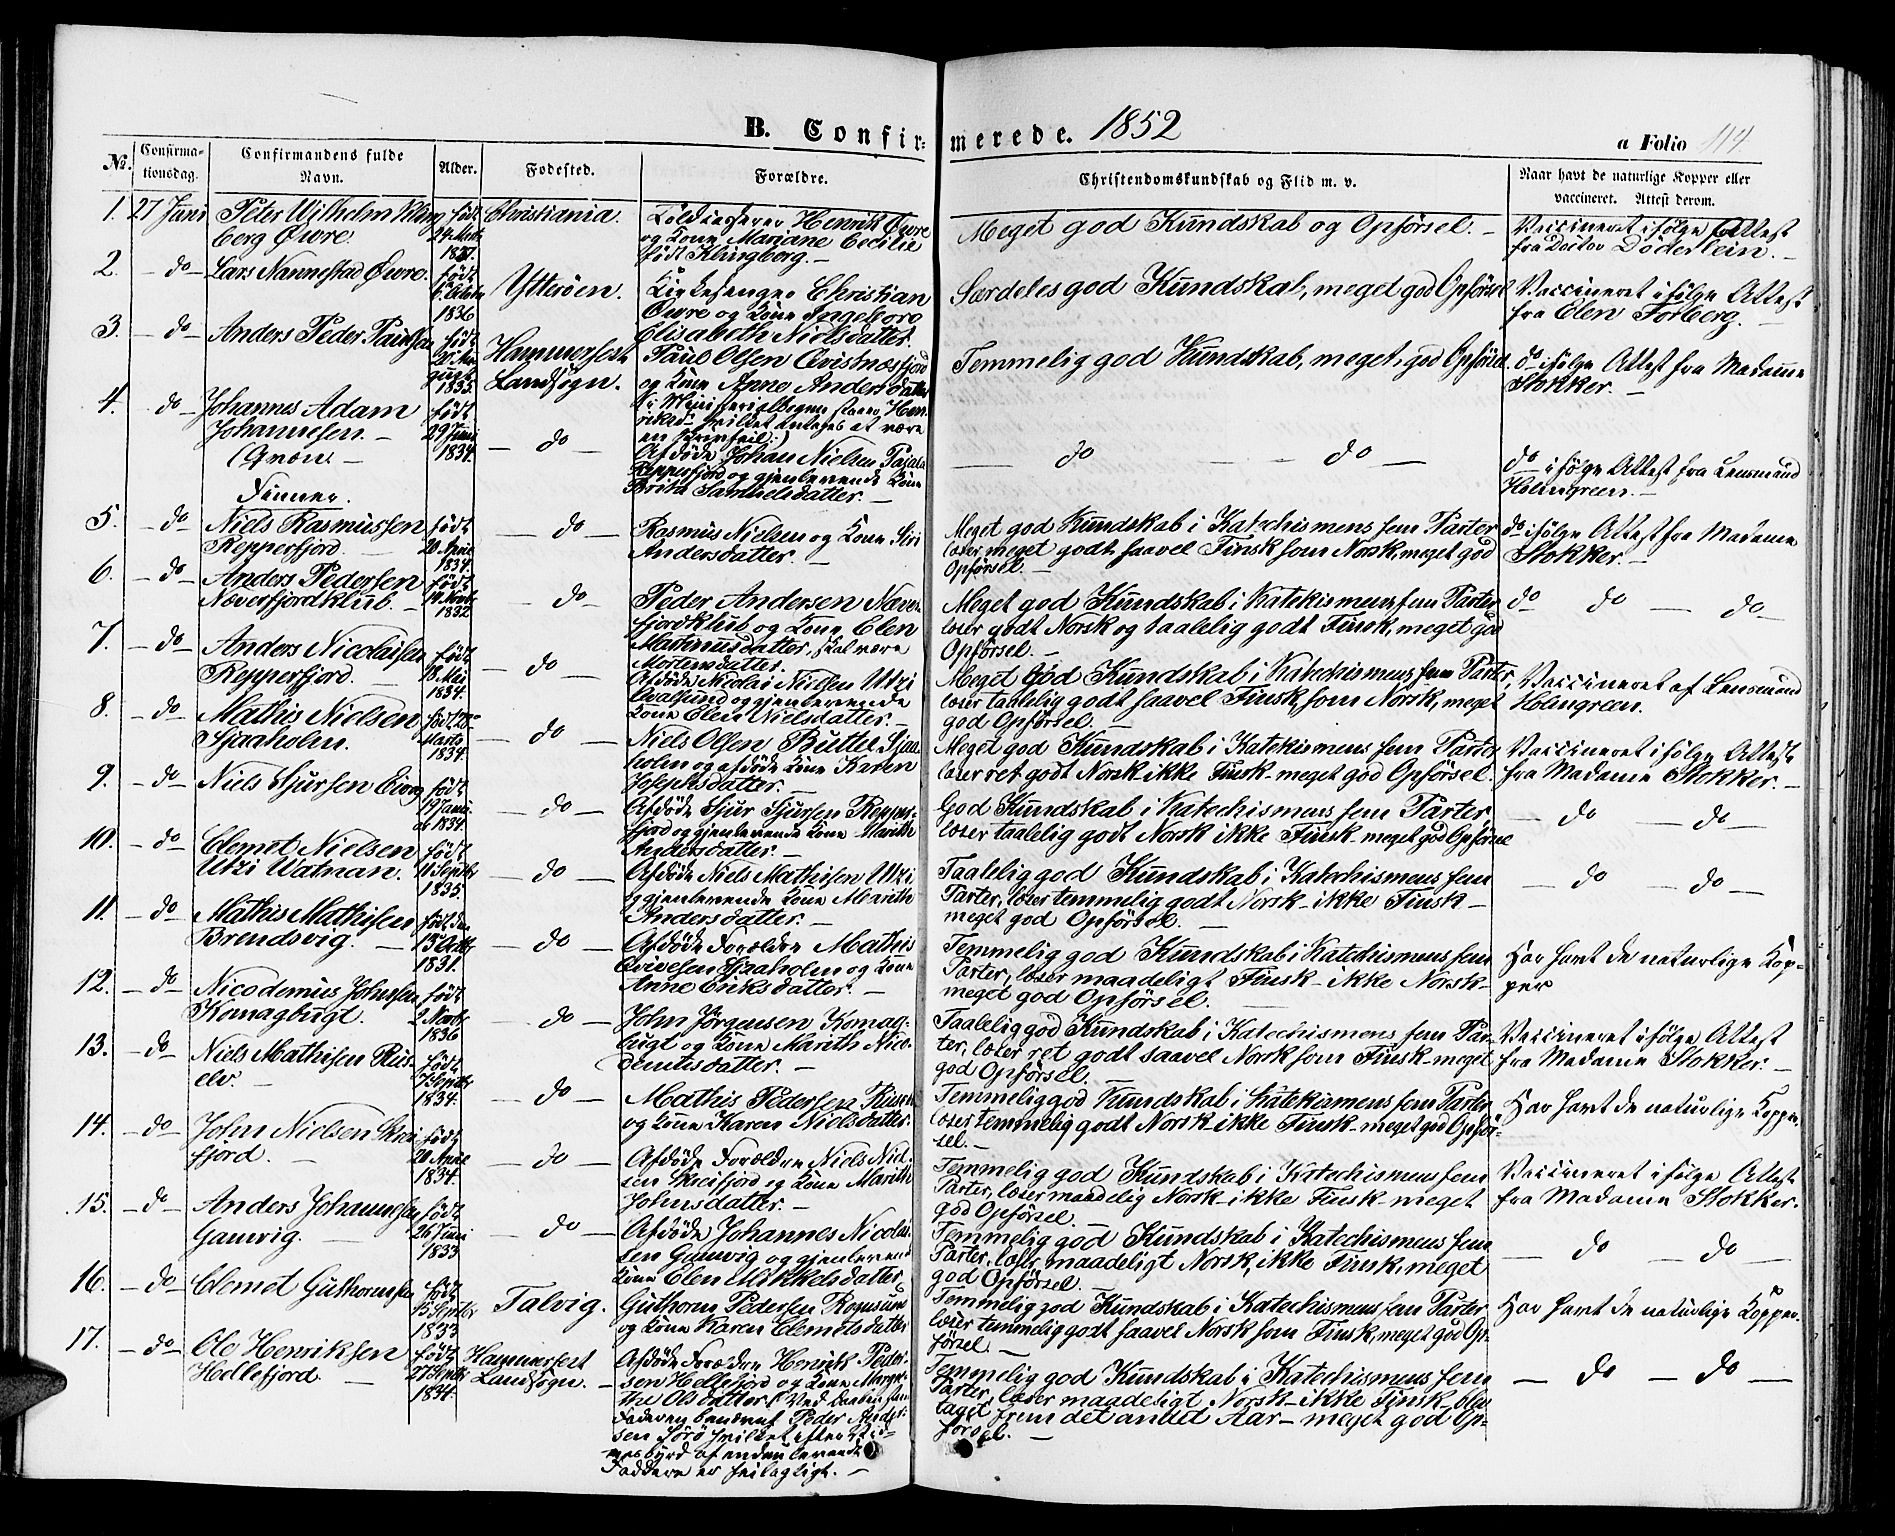 B. Confirmerede. 1852
a Folio 114
No. Confirmationsdag. Confirmandens fulde Navn. Alder. Fødested. Forældre. Christendomskundskab og Flid m. v. Naar havt de naturlige Kopper eller vaccineret. Attest derom.
1. 27 Juni Peter Wilhelm Klingberg Øwre. født 24 Marts 1837. Christiania. Henrik Øwre og Kone Mariane Cecilie født Klingberg. Meget god Kundskab og Opførsel. Vaccineret ifølge Attest fra Doctor Döderlein.
2. do Lars Nannestad Øwre. født 1836 Ytterøen. Kirkesanger Christian Øwre og Kone Ingeborg Elisabeth Nielsdatter. Særdeles god Kundskab, meget god Opførsel Vaccineret ifølge Attest fra Elen Forberg.
3. do Anders Peder Paulsen født August 1835. Hammerfest Landsogn. Paul Olsen og Kone Anne Andersdatter (i Ministerialbogen staaer Henriksd. hvilket antages at være en Skrivfeil.) Temmelig god Kundskab, meget god Opførsel do ifølge Attest fra Madame Stokker.
4. do Johannes Adam Johannesen. (Qvæn. født 29 Juni 1834. do Afdøde Johan Nielsen Pajala Repperfjord og gjenlevende Kone Brita Samuelsdatter. do do do ifølge Attest fra Lensmand Holmgreen.
Finner.
5. do Niels Rasmussen Repperfjord. født 20 April 1834. do Rasmus Nielsen og Kone Siri Andersdatter. Meget god Kundskab i Katechismens fem Parter læser meget godt saavel Finsk som Norsk, meget god Opførsel. do ifølge Attest fra Madame Stokker.
6. do Anders Pedersen Næverfjordklub. født 14 Novb 1832 do Peder Andersen Næverfjordklub og Kone Elen Martinusdatter, skal være Mortensdatter. Meget god Kundskab i Katekismens fem Parter læser godt Norsk og taalelig godt Finsk, meget god Opførsel. do do do
7. do Anders Nicolaisen Repperfjord. født 18 Mai 1834. do Afdøde Nicolai Nielsen Utzi Qvalsund og gjenlevende Kone Elen Nielsdatter. Meget god Kundskab i Katekismens fem Parter læser taalelig godt saavel Finsk, som Norsk, meget god Opførsel. Vaccineret af Lensmand Holmgreen.
8. do Mathis Nielsen Sjaaholm. født 28 Marts 1834. do Niels Olsen Butte Sjaaholm og afdøde Kone Karen Josephsdatter. Meget god Kundskab i Katekismens fem Parter læser ret godt Norsk ikke Finsk - meget god Opførsel. Vaccineret ifølge Attest fra Madame Stokker.
9. do Niels Sjursen født 19 Januar 1834. do Afdøde Sjur Sjursen Repperfjord og gjenlevende Kone Marith Andersdatter. God Kundskab i Katechismens fem Parter, læser taalelig godt Norsk ikke Finsk - meget god Opførsel do do
10. do Clemet Nielsen Utzi Watnan. født 11 Septbr 1835. do Afdøde Niels Mathisen Utzi og gjenlevende Kone Marith Andersdatter. Taalelig god Kundskab i Katechismens fem Parter, læser temmelig godt Norsk - ikke Finsk - meget god Opførsel. do do
11. do Mathis Mathisen Brendsvig. født den 15de 1831. do Afdøde Forældre Mathis Sjaaholm og Kone Anne Eriksdatter. Temmelig god Kundskab i Katechismens fem Parter, læser maadeligt Finsk - ikke Norsk - meget god Opførsel. Har havt de naturlige Kopper
12. do Nicodemus Johnsen Komagbugt. født 2 Novb 1836 do John Jørgensen Komagbugt og Kone Marith Nicodemusdatter. Taalelig god Kundskab i Katechismens fem Parter, læser ret godt saavel Norsk som Finsk - meget god Opførsel. Vaccineret ifølge Attest fra Madame Stokker.
13. do Niels Mathisen Ruselv. født 7 Septbr 1834. do Mathis Pedersen Ruselv og Kone Karen Nielsdatter. Temmelig god Kundskab i Katekismens fem Parter læser temmelig godt Norsk ikke Finsk - meget god Opførsel. Har havt de naturlige Kopper.
14. do John Nielsen Skreifjord. født 20 April 1834. do Afdøde Forældre Niels Nielsen Skreifjord og Kone Marith Johnsdatter. Temmelig god Kundskab i Katechismens fem Parter, læser maadelig Norsk - ikke Finsk - meget god Opførsel. Vaccineret ifølge Attest fra Madame Stokker.
15. do Anders Johannesen Gamvig. født 26 Juni 1833 do Afdøde Johannes Nicolaisen Gamvig og gjenlevende Kone Elen Mikkelsdatter. Temmelig god Kundskab i Katechismens fem Parter, læser maadeligt Norsk, ikke Finsk, meget god Opførsel. do do
16. do Clemet Guthormsen født 15 Septbr 1833 Talvig. Guthorm Pedersen Rognsund og Kone Karen Clemetsdatter Temmelig god Kundskab i Katechismens fem Parter læser temmelig godt saavel Norsk som Finsk, meget god Opførsel. Har havt de naturlige Kopper.
17. do Ole Henriksen Hellefjord. født 27 Septbr 1834. Hammerfest Landsogn. Afdøde Forældre Henrik Pedersen Hellefjord og Kone Margrethe Olsdatter (Ved Daaben fem Faderen benævnt Peder Andersen Sørø hvilket efter Vidnesbyrd af endnu levende Faddere er feilagtigt. Temmelig god Kundskab i Katechismens fem Parter, læser maadeligt Norsk - ikke Finsk - blev taget frem det andet Aar - meget god Opførsel. do do